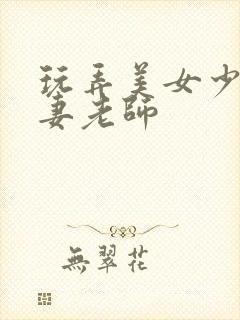 玩弄美女少
妻老師
無翠花